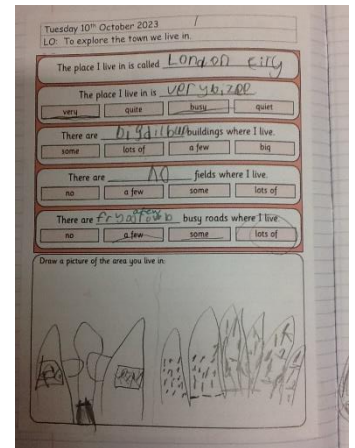 Tuesday 10th October 2023
LO: To explore the town we live in.
The place I live in is called London city
The place I live in is very bizee
very quite busy quiet
There are buildings where I live.
some lots of a few big
There are no fields where I live.
no a few some lots of
There are busy roads where I live
no a few some lots of
Draw a picture of the area you live in: